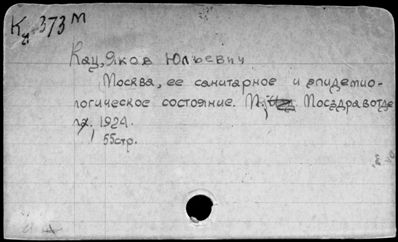 Ку 373 м
Кац, Яков Юльевич
Москва, ее санитарное и эпидемио-
логическое состояние. М., Мосздравотде
ла. 1924.
55стр.